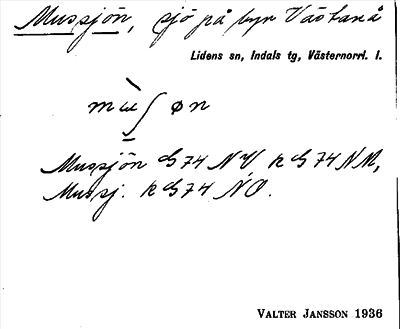 Mussjön, sjö på byn Västanå
Lidens sn, Indals tg, Västernorrl. l.
mɯ̀ʃøn
Mussjön GS74 NV k GS74 NM,
Mussj. k GS74 NO.
VALTER JANSSON 1936